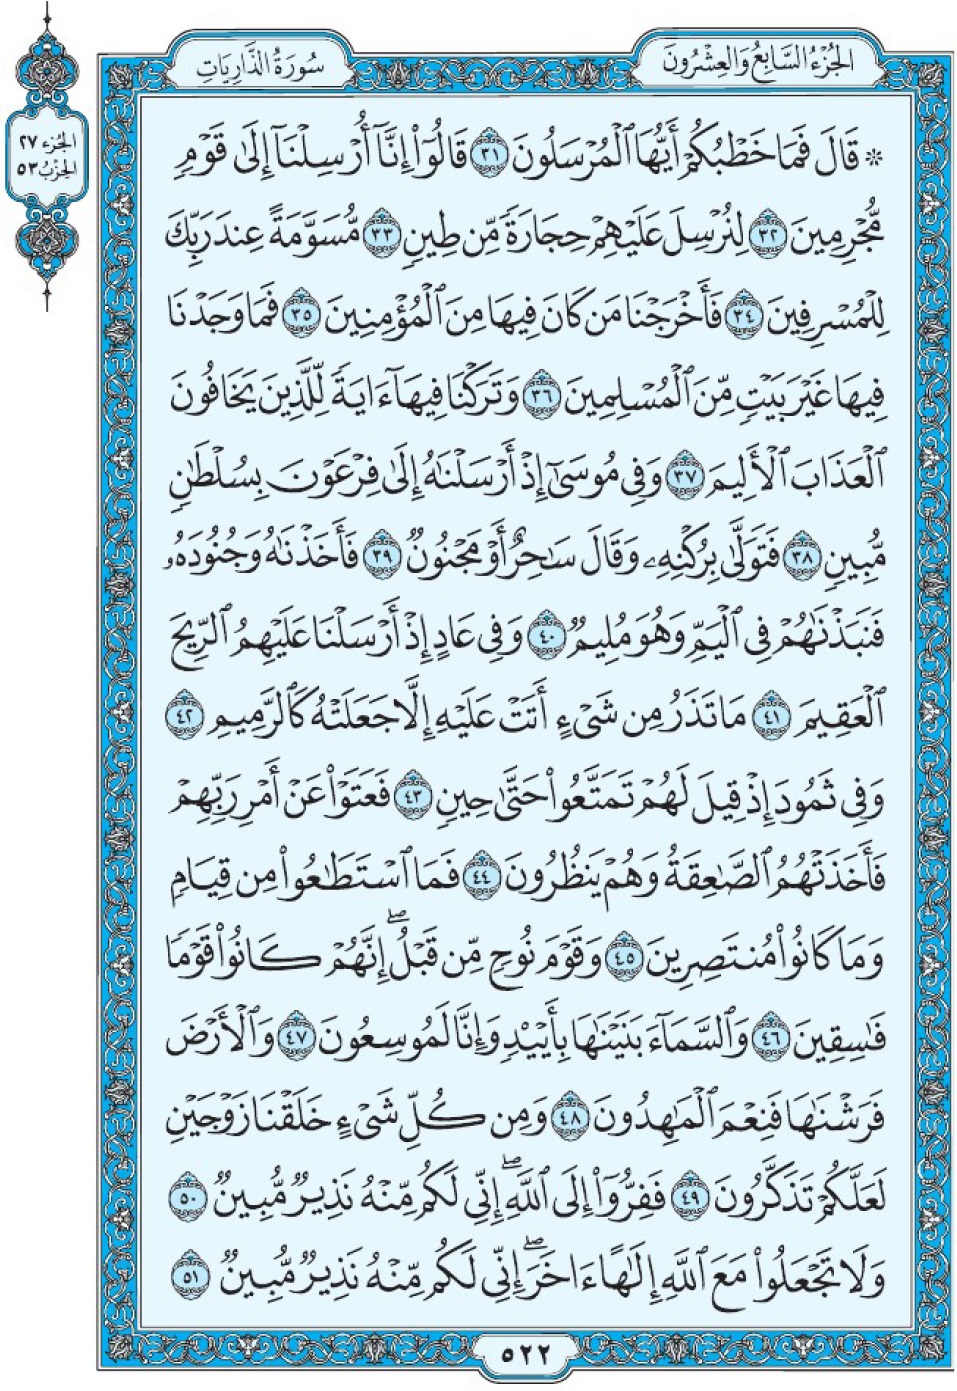 الجُزْءُ السَّابِعُ وَالعِشْرُونَ
سُورَةُ الذَّارِيَاتِ
الجُزء ٢٧
الحِزْبُ ٥٣
۞ قَالَ فَمَا خَطْبُكُمْ أَيُّهَا ٱلْمُرْسَلُونَ ٣١ قَالُوٓا۟ إِنَّآ أُرْسِلْنَآ إِلَىٰ قَوْمٍ
مُّجْرِمِينَ ٣٢ لِنُرْسِلَ عَلَيْهِمْ حِجَارَةً مِّن طِينٍ ٣٣ مُّسَوَّمَةً عِندَ رَبِّكَ
لِلْمُسْرِفِينَ ٣٤ فَأَخْرَجْنَا مَن كَانَ فِيهَا مِنَ ٱلْمُؤْمِنِينَ ٣٥ فَمَا وَجَدْنَا
فِيهَا غَيْرَ بَيْتٍ مِّنَ ٱلْمُسْلِمِينَ ٣٦ وَتَرَكْنَا فِيهَآ ءَايَةً لِّلَّذِينَ يَخَافُونَ
ٱلْعَذَابَ ٱلْأَلِيمَ ٣٧ وَفِى مُوسَىٰٓ إِذْ أَرْسَلْنَٰهُ إِلَىٰ فِرْعَوْنَ بِسُلْطَٰنٍ
مُّبِينٍ ٣٨ فَتَوَلَّىٰ بِرُكْنِهِۦ وَقَالَ سَٰحِرٌ أَوْ مَجْنُونٌ ٣٩ فَأَخَذْنَٰهُ وَجُنُودَهُۥ
فَنَبَذْنَٰهُمْ فِى ٱلْيَمِّ وَهُوَ مُلِيمٌ ٤٠ وَفِى عَادٍ إِذْ أَرْسَلْنَا عَلَيْهِمُ ٱلرِّيحَ
ٱلْعَقِيمَ ٤١ مَا تَذَرُ مِن شَىْءٍ أَتَتْ عَلَيْهِ إِلَّا جَعَلَتْهُ كَٱلرَّمِيمِ ٤٢
وَفِى ثَمُودَ إِذْ قِيلَ لَهُمْ تَمَتَّعُوا۟ حَتَّىٰ حِينٍ ٤٣ فَعَتَوْا۟ عَنْ أَمْرِ رَبِّهِمْ
فَأَخَذَتْهُمُ ٱلصَّٰعِقَةُ وَهُمْ يَنظُرُونَ ٤٤ فَمَا ٱسْتَطَٰعُوا۟ مِن قِيَامٍ
وَمَا كَانُوا۟ مُنتَصِرِينَ ٤٥ وَقَوْمَ نُوحٍ مِّن قَبْلُ ۖ إِنَّهُمْ كَانُوا۟ قَوْمًا
فَٰسِقِينَ ٤٦ وَٱلسَّمَآءَ بَنَيْنَٰهَا بِأَيْي۟دٍ وَإِنَّا لَمُوسِعُونَ ٤٧ وَٱلْأَرْضَ
فَرَشْنَٰهَا فَنِعْمَ ٱلْمَٰهِدُونَ ٤٨ وَمِن كُلِّ شَىْءٍ خَلَقْنَا زَوْجَيْنِ
لَعَلَّكُمْ تَذَكَّرُونَ ٤٩ فَفِرُّوٓا۟ إِلَى ٱللَّهِ ۖ إِنِّى لَكُم مِّنْهُ نَذِيرٌ مُّبِينٌ ٥٠
وَلَا تَجْعَلُوا۟ مَعَ ٱللَّهِ إِلَٰهًا ءَاخَرَ ۖ إِنِّى لَكُم مِّنْهُ نَذِيرٌ مُّبِينٌ ٥١
٥٢٢